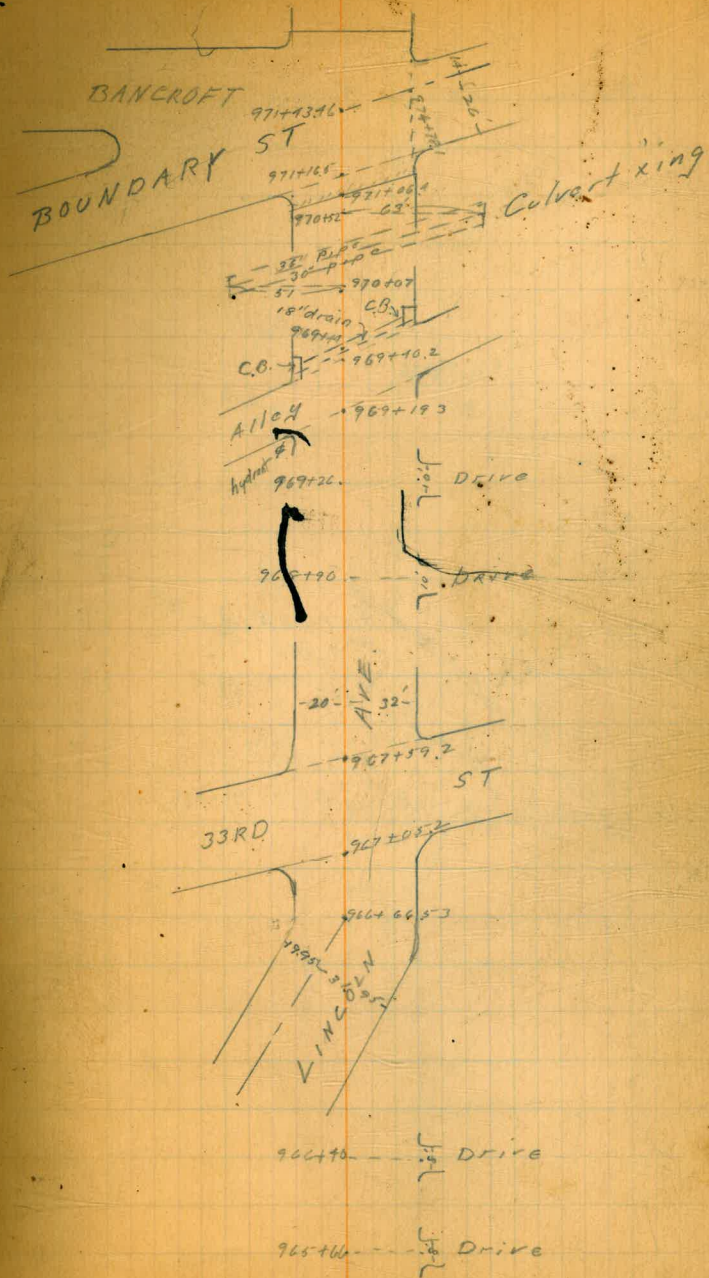 BANCROFT
14' 26'
971+43.46
BOUNDARY ST
971+16.5
971+06.4
Culvert x'ing
970+52 63'
36" pipe
30" pipe
51 970+07
18" drain C.B.
C.B. 969+40.2
Alley 969+19.3
hydrant
969+26. Drive
968+90 Drive
20' AVE. 32'
967+59.2
ST
33RD
967+05.2
966+66.53
LINCOLN
966+40 Drive
965+66 Drive